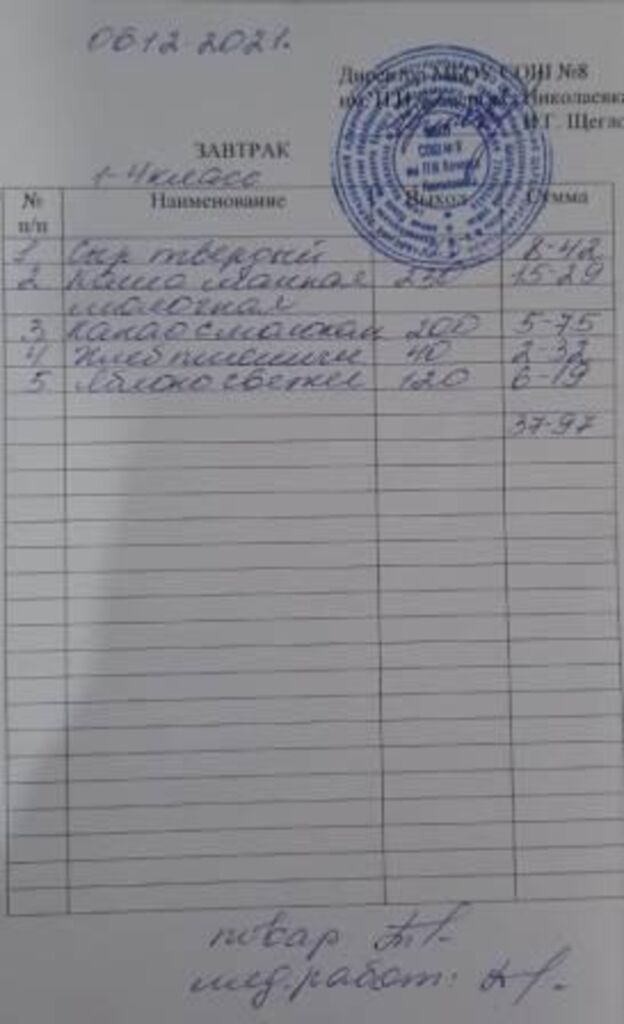 06.12.2021.
Директор МБОУ СОШ №8
Николаевка
И.Г. Щегло
ЗАВТРАК
1-4 класс
№ п/п Наименование Выход Сумма
1 Сыр твердый 8-42
2 Каша манная 230 15-29
молочная
3 Какао с молоком 200 5-75
4 Хлеб пшеничн 40 2-32
5 Яблоко свежее 120 6-19
37-97
повар
мед.работ: